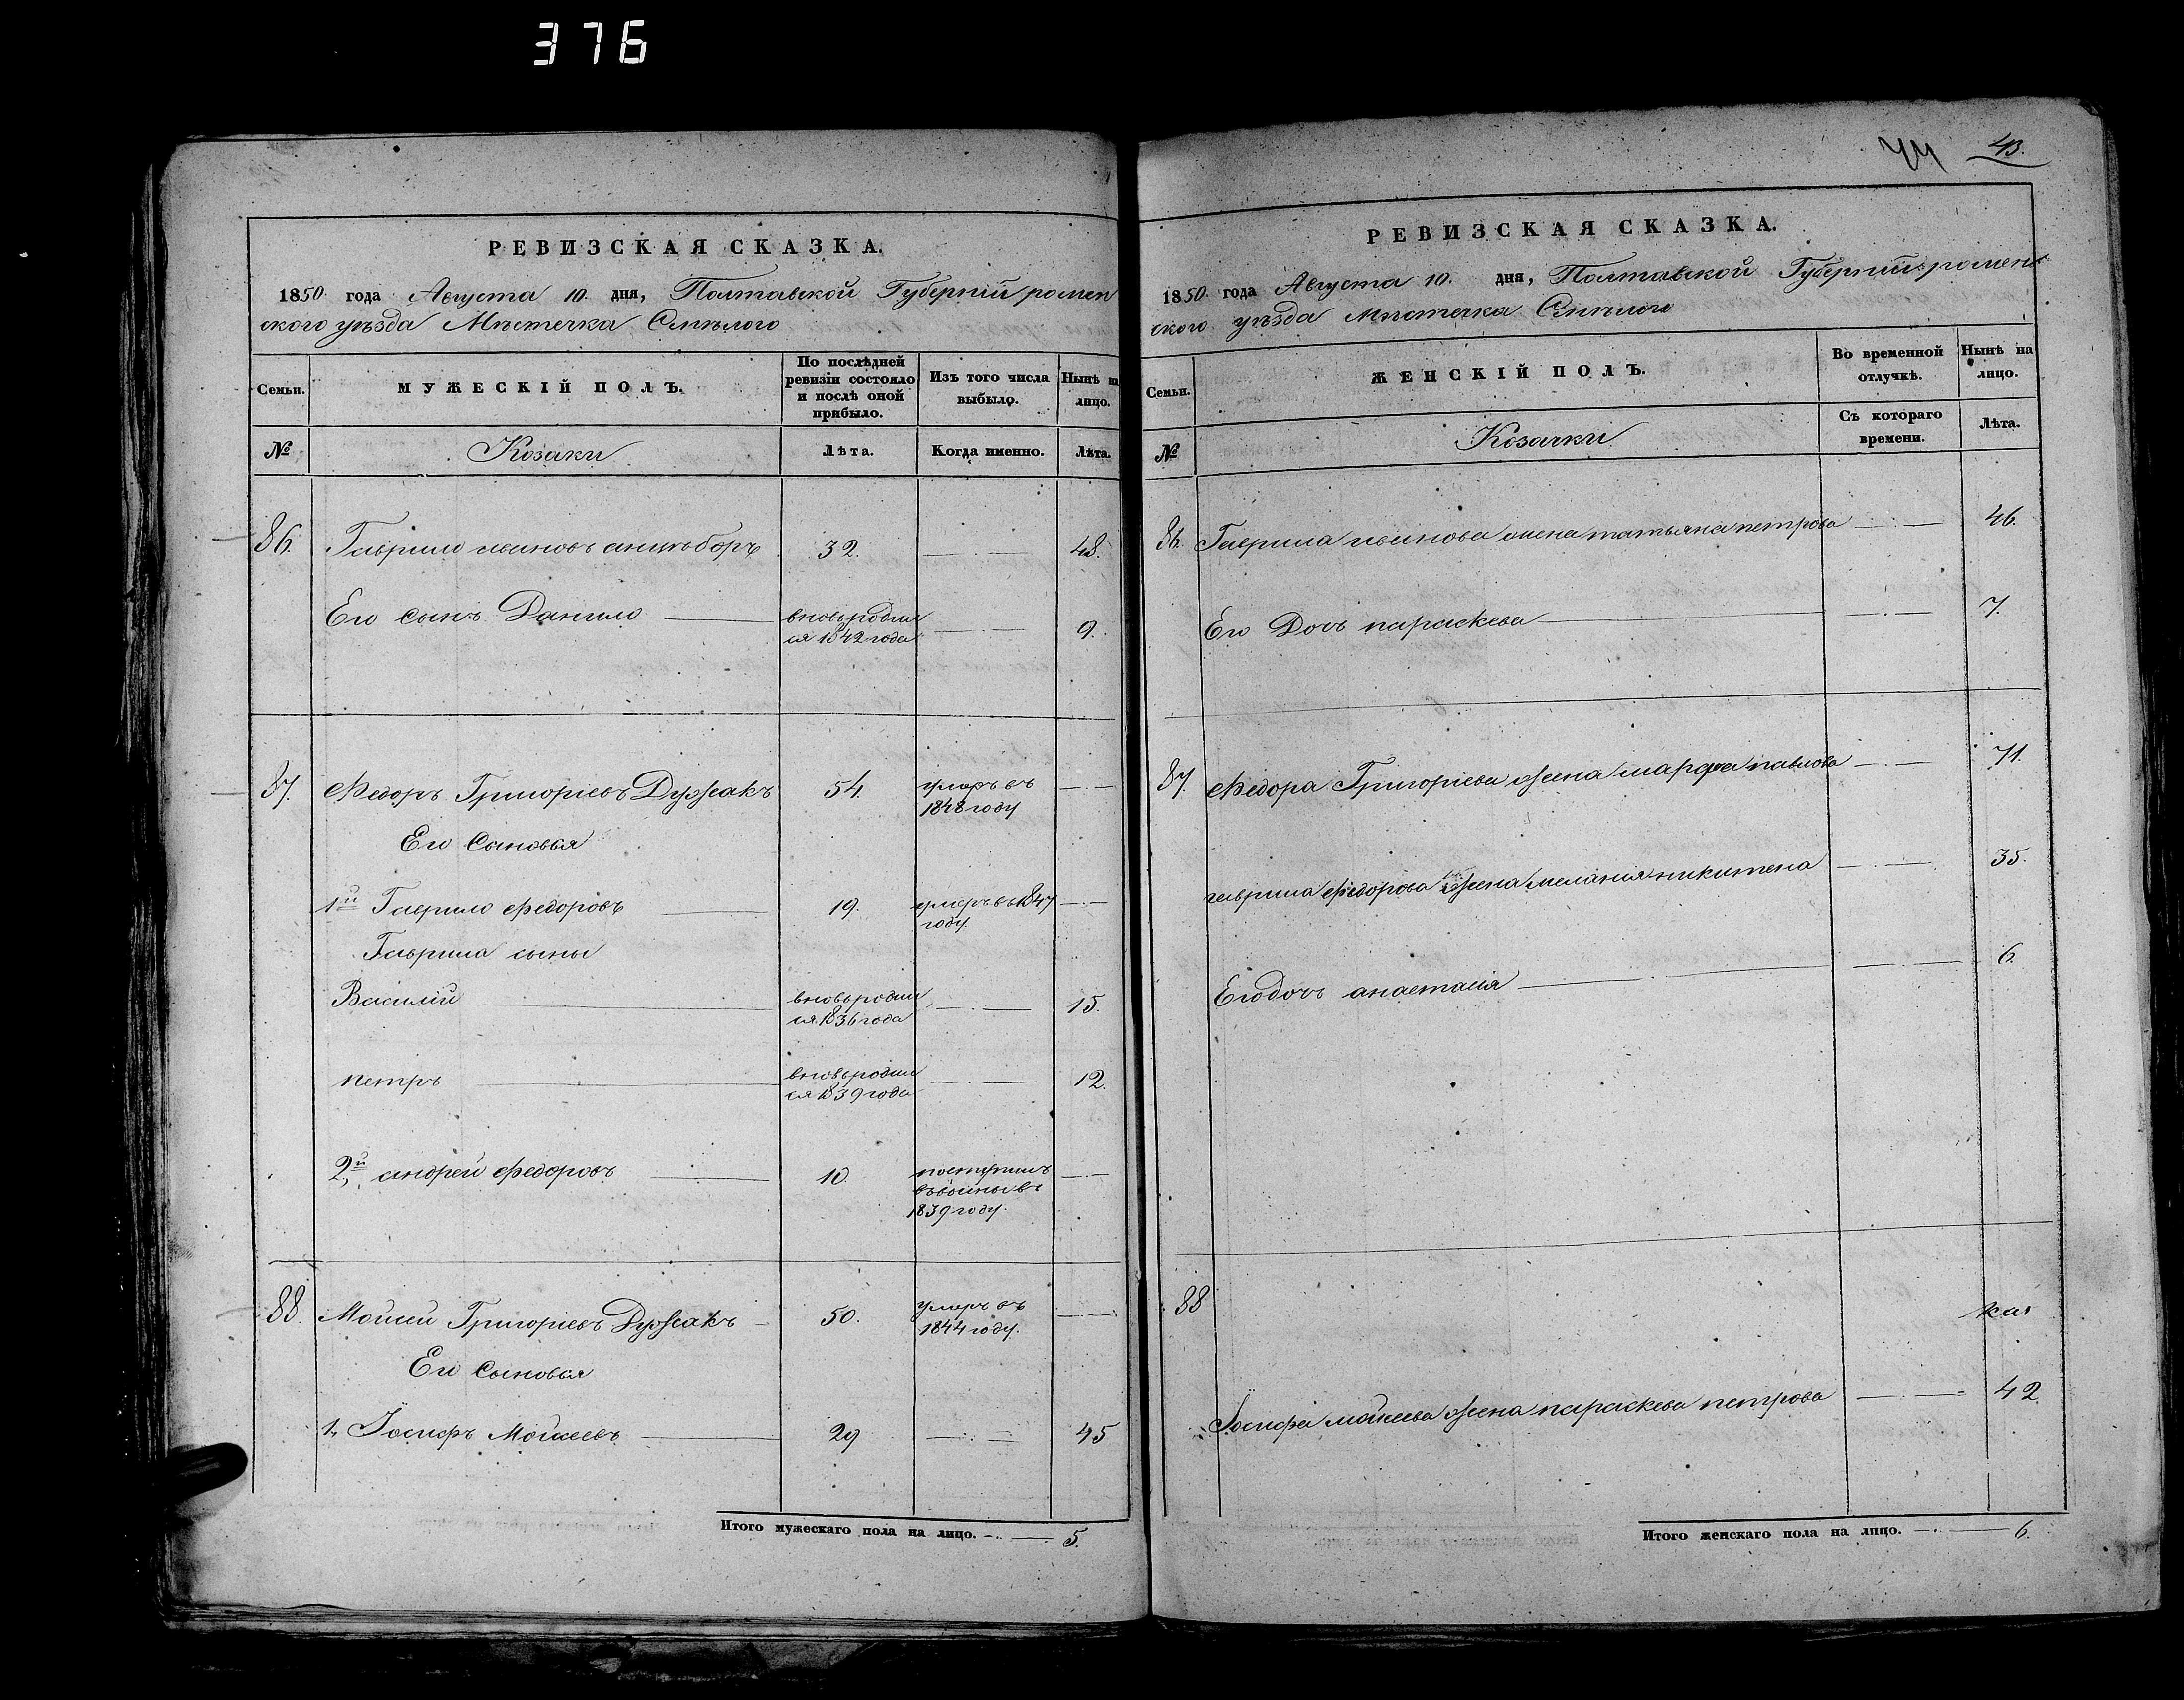 376
РЕВИЗСКАЯ СКАЗКА.
1850 года Августа 10. дня, Полтавской Губерніи ромен
ского уѣзда Мѣстечка Смѣлого
Семьи. МУЖЕСКІЙ ПОЛЪ. По послѣдней ревизіи состояло и послѣ оной прибыло. Изъ того числа выбыло. Нынѣ на лицо.
№ Козаки Лѣта. Когда именно. Лѣта.
86. Гаврило ивановъ 32. 48.
Его сынъ Данило вновь родил 9.
ся 1842 года
87. Федоръ Григоріевъ Дужакъ 54. умеръ въ
1848 году
Его Сыновья
1й Гаврило Федоровъ 19. умеръ въ 1847
году.
Гаврила сыны
Василій вновь родил 15.
ся 1836 года
петръ вновь родил 12.
ся 1839 года
2й андрей Федоровъ 10. поступилъ
1839 году.
88. Мойсей Григоріевъ Дужакъ 50. умеръ въ
1844 году.
Его Сыновья
1, Іосифъ Мойсеевъ 29 45
Итого мужескаго пола на лицо. 5.
44 43.
РЕВИЗСКАЯ СКАЗКА.
1850 года Августа 10. дня, Полтавской Губерніи роменс
ского уѣзда Мѣстечка Смѣлого
Семьи. ЖЕНСКІЙ ПОЛЪ. Во временной отлучкѣ. Нынѣ на лицо.
№ Козачки Съ котораго времени. Лѣта.
86. Гаврила иванова жена татьяна петрова 46.
Его Дочь параскева 7.
87. Федора Григоріева жена марфа павлова 71.
гаврила Федорова жена мелания никитена 35.
Его дочь анастасія 6.
88
Іосифа мойсеева жена параскева петрова 42
Итого женскаго пола на лицо. 6.